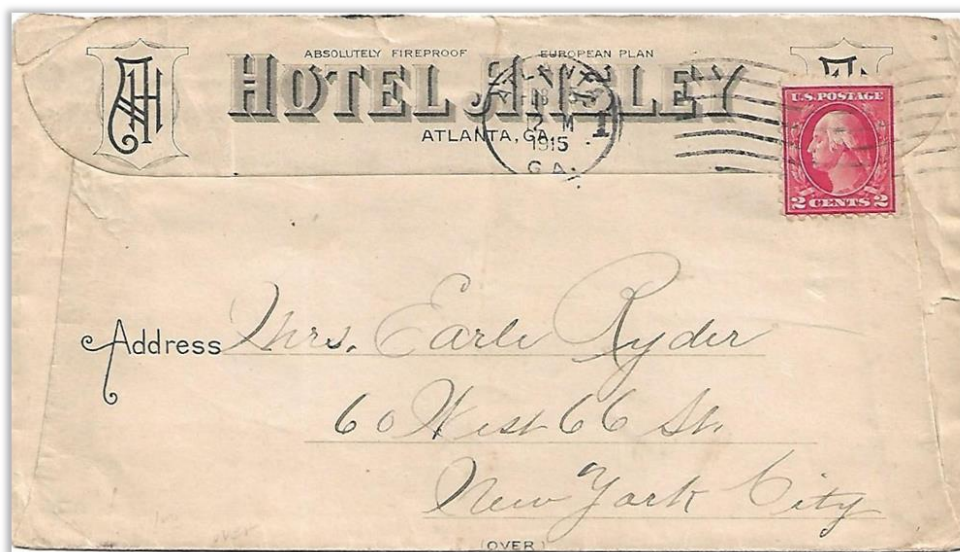 ABSOLUTELY FIREPROOF EUROPEAN PLAN
AH HOTEL ANSLEY
ATLANTA, GA.
1915
GA.
U.S. POSTAGE
2 CENTS 2
Address Mrs. Earle Ryder
60 West 66 St.
New York City
(OVER)